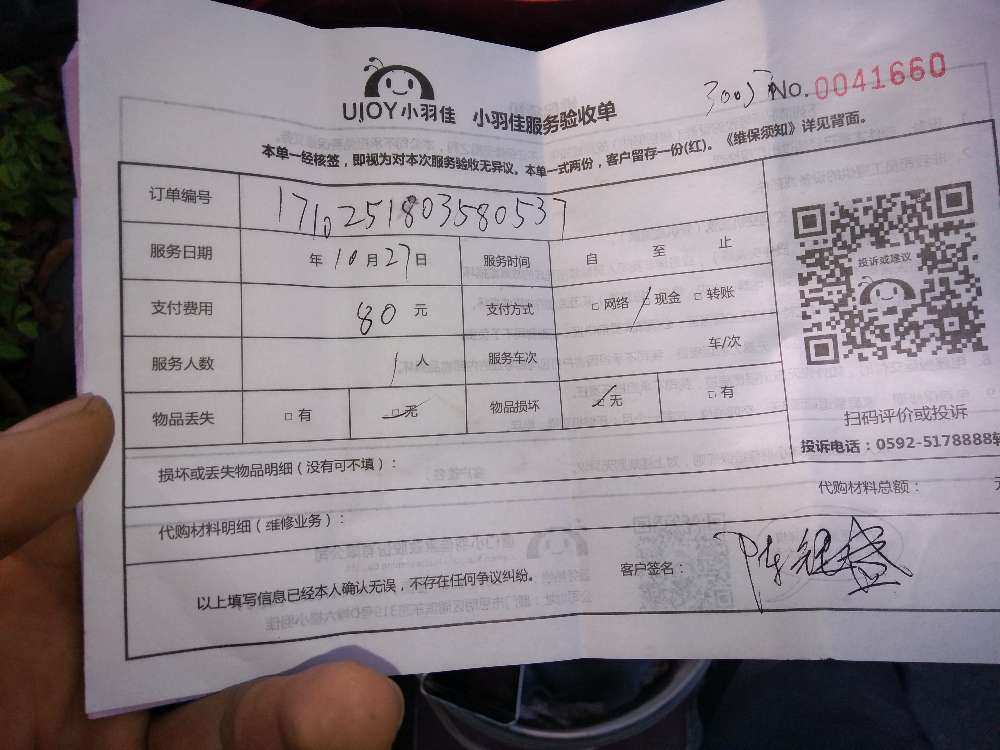 UJOY小羽佳 小羽佳服务验收单
No.0041660
本单一经核签，即视为对本次服务验收无异议。本单一式两份，客户留存一份(红)。《维保须知》详见背面。
订单编号 1710251803580537
服务日期 年10月27日 服务时间 自 至 止
支付费用 80 元 支付方式 □ 网络 □ 现金 □ 转账
服务人数 1 人 服务车次 车/次
物品丢失 □ 有 □ 无 物品损坏 □ 无 □ 有
投诉或建议
扫码评价或投诉
投诉电话：0592-5178888转
损坏或丢失物品明细（没有可不填）：
代购材料明细（维修业务）：
代购材料总额：
以上填写信息已经本人确认无误，不存在任何争议纠纷。
客户签名：